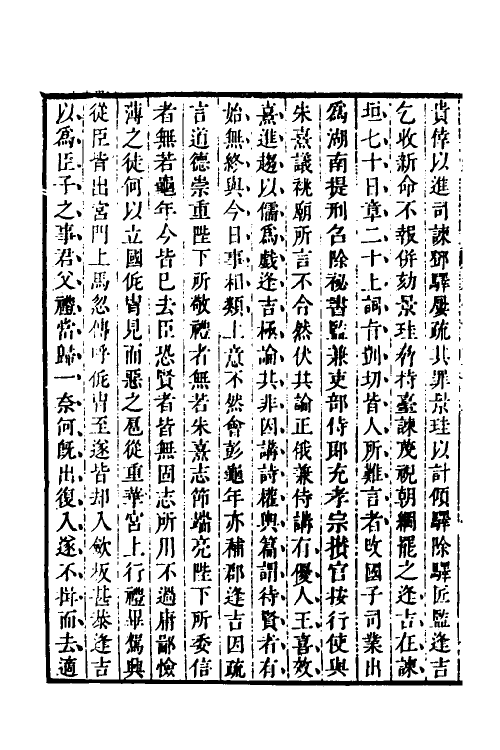 貴倖以進司諫鄧驛屢疏其罪景珪以計傾驛除驛匠監逢吉
乞收新命不報併劾景珪竹特臺諫茂視朝綱罷之逢吉在諫
垣七十日章二十上詞旨剴切皆人所難言者改國子司業出
為湖南提刑名除秘書監兼吏部侍郎充孝宗攢官按行使與
朱熹議祧廟所言不合然伏其論正俄兼侍講有優人王喜效
熹進趨以儒為戲逢吉極論其非因講詩權輿篇謂待賢者有
始無終與今日事相類上意不然會彭龜年亦補郡逢吉因疏
言道德崇重陛下所敬禮者無若朱熹志節端亮陛下所委信
者無若龜年今皆已去臣恐賢者皆無固志所用不過庸鄙憸
薄之徒何以立國侂冑見而惡之屬從重華宮上行禮畢駕興
從臣皆出宮門上馬忽傳呼侂冑至遂皆却入歛坂甚恭逢吉
以為臣子之事君父禮當歸一奈何旣出復入遂不揖而去適